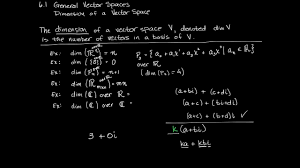 6.1 General Vector Spaces
Dimension of a Vector Space
The dimension of a vector space V, denoted dim V
is the number of vectors in a basis of V.
Ex: dim (ℝⁿ) = n
Ex: dim ({0}) = 0
Ex: dim (Pₙ) = n+1
Ex: dim (
Ex: dim (ℂ) over ℝ =
Ex: dim (ℂ) over ℂ =
P₃ = { a₀ + a₁x¹ + a₂x² + a₃x³ | aₖ ∈ ℝ }
over ℝ
(dim (P₃) = 4)
(a+bi) + (c+di)
(a+c) + (bi+di)
(a+c) + (b+d)i ✓
k(a+bi)
ka + kbi
3 + 0i